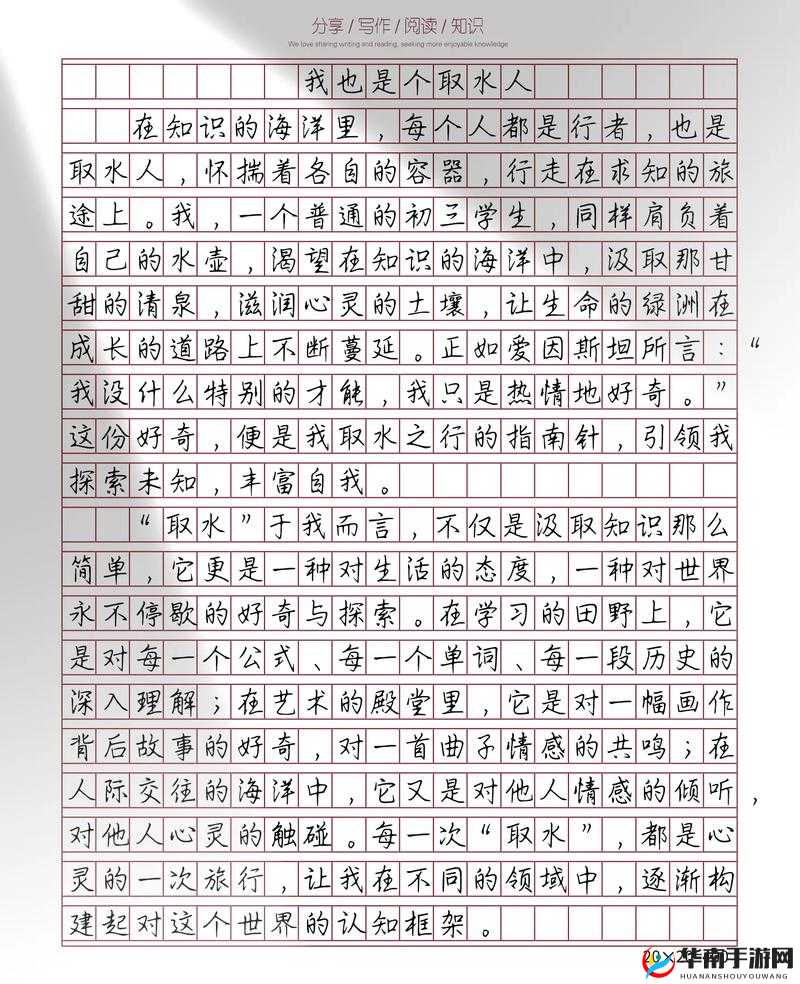 分享/写作/阅读/知识
We love sharing writing and reading, seeking more enjoyable knowledge
我也是个取水人
在知识的海洋里，每个人都是行者，也是
取水人，怀揣着各自的容器，行走在求知的旅
途上。我，一个普通的初三学生，同样肩负着
自己的水壶，渴望在知识的海洋中，汲取那甘
甜的清泉，滋润心灵的土壤，让生命的绿洲在
成长的道路上不断蔓延。正如爱因斯坦所言：“
我没什么特别的才能，我只是热情地好奇。”
这份好奇，便是我取水之行的指南针，引领我
探索未知，丰富自我。
“取水”于我而言，不仅是汲取知识那么
简单，它更是一种对生活的态度，一种对世界
永不停歇的好奇与探索。在学习的田野上，它
是对每一个公式、每一个单词、每一段历史的
深入理解；在艺术的殿堂里，它是对一幅画作
背后故事的好奇，对一首曲子情感的共鸣；在
人际交往的海洋中，它又是对他人情感的倾听，
对他人心灵的触碰。每一次“取水”，都是心
灵的一次旅行，让我在不同的领域中，逐渐构
建起对这个世界的认知框架。
华南手游网
HUANANSHOUYOUWANG